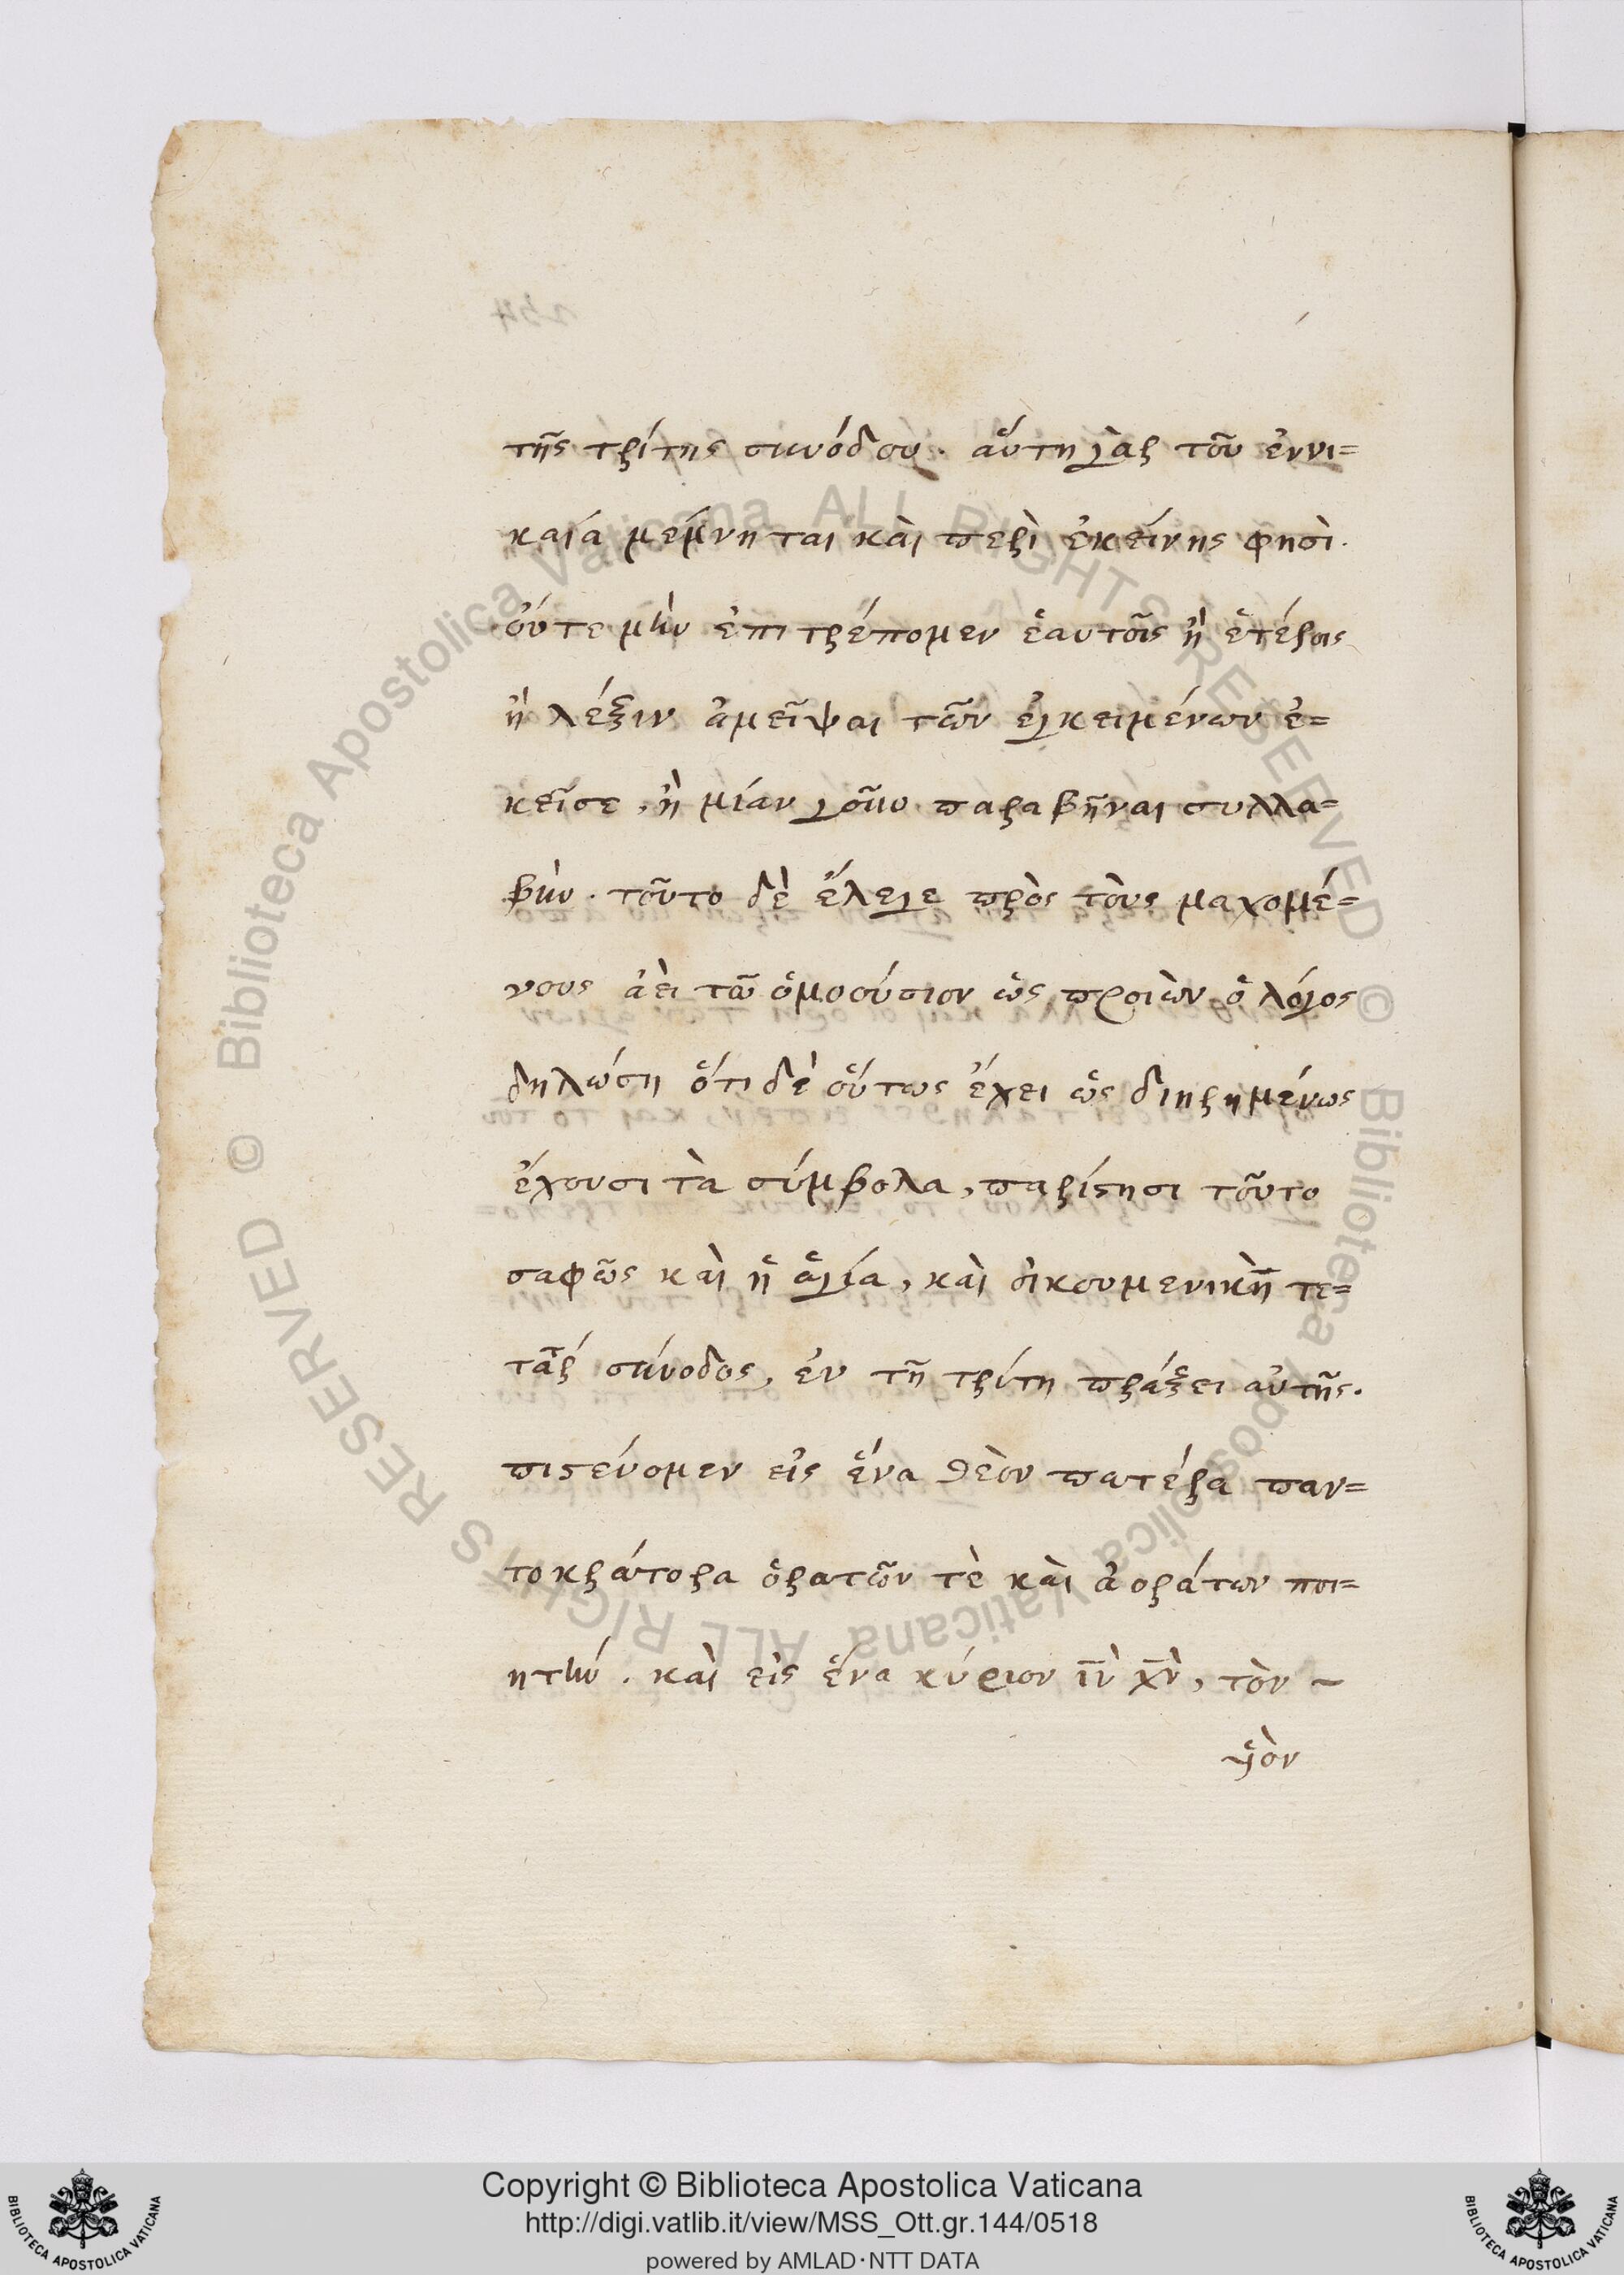 τῆς τρίτης συνόδου. αὕτη γὰρ τοῦ ἐννι=
καία μέμνηται καὶ περὶ ἐκείνης φησὶ.
οὔτε μὴν ἐπιτρέπομεν ἑαυτοῖς ἢ ἑτέροις
ἢ λέξιν ἀμεῖψαι τῶν ἐγκειμένων ἐ=
κεῖσε, ἢ μίαν γοῦν παραβῆναι συλλα=
βὴν. τοῦτο δὲ ἔλεγε πρὸς τοὺς μαχομέ=
νους ἀεὶ τῶ ὁμοούσιον ὡς προιὼν ὁ λόγος
δηλώση ὅτι δὲ οὕτως ἔχει ὡς διηρημένως
ἔχουσι τὰ σύμβολα, παρίστησι τοῦτο
σαφῶς καὶ ἡ ἁγία, καὶ οἰκουμενικὴ τε=
τάρ σύνοδος, ἐν τῆ τρίτη πράξει αὐτῆς.
πιστεύομεν εἰς ἕνα θεὸν πατέρα παν=
τοκράτορα ὁρατῶν τὲ καὶ ἀοράτων ποι=
ητήν. καὶ εἰς ἕνα κύριον ιν χν, τὸν ~
υἱὸν
Copyright © Biblioteca Apostolica Vaticana
http://digi.vatlib.it/view/MSS_Ott.gr.144/0518
powered by AMLAD·NTT DATA
BIBLIOTECA APOSTOLICA VATICANA
BIBLIOTECA APOSTOLICA VATICANA
© Biblioteca Apostolica Vaticana ALL RIGHTS RESERVED
© Biblioteca Apostolica Vaticana ALL RIGHTS RESERVED